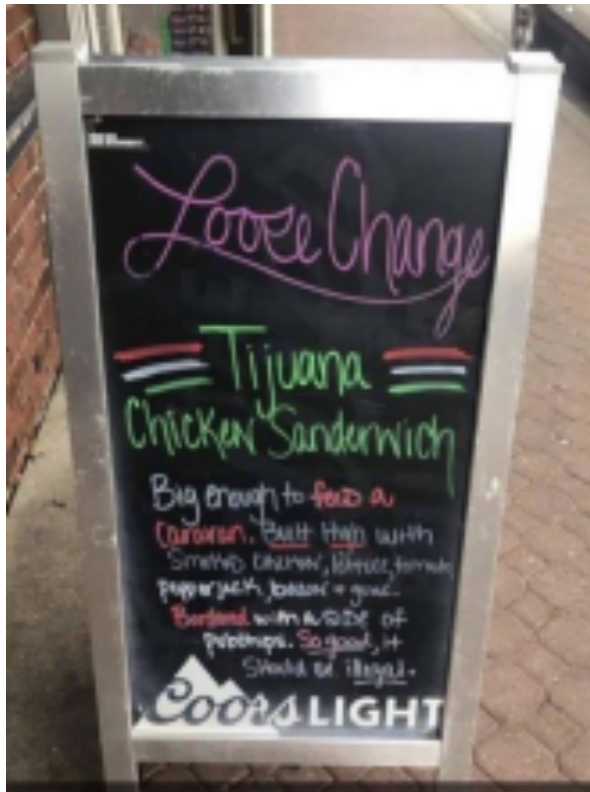 Loose Change
Tijuana
Chicken Sanderwich
Big enough to feed a
Caravan. Built High with
Smoked chicken, lettuce, tomato
pepperjack, bacon + guac.
Bordered with a side of
pubchips. So good, it
Should be illegal.
Coors LIGHT